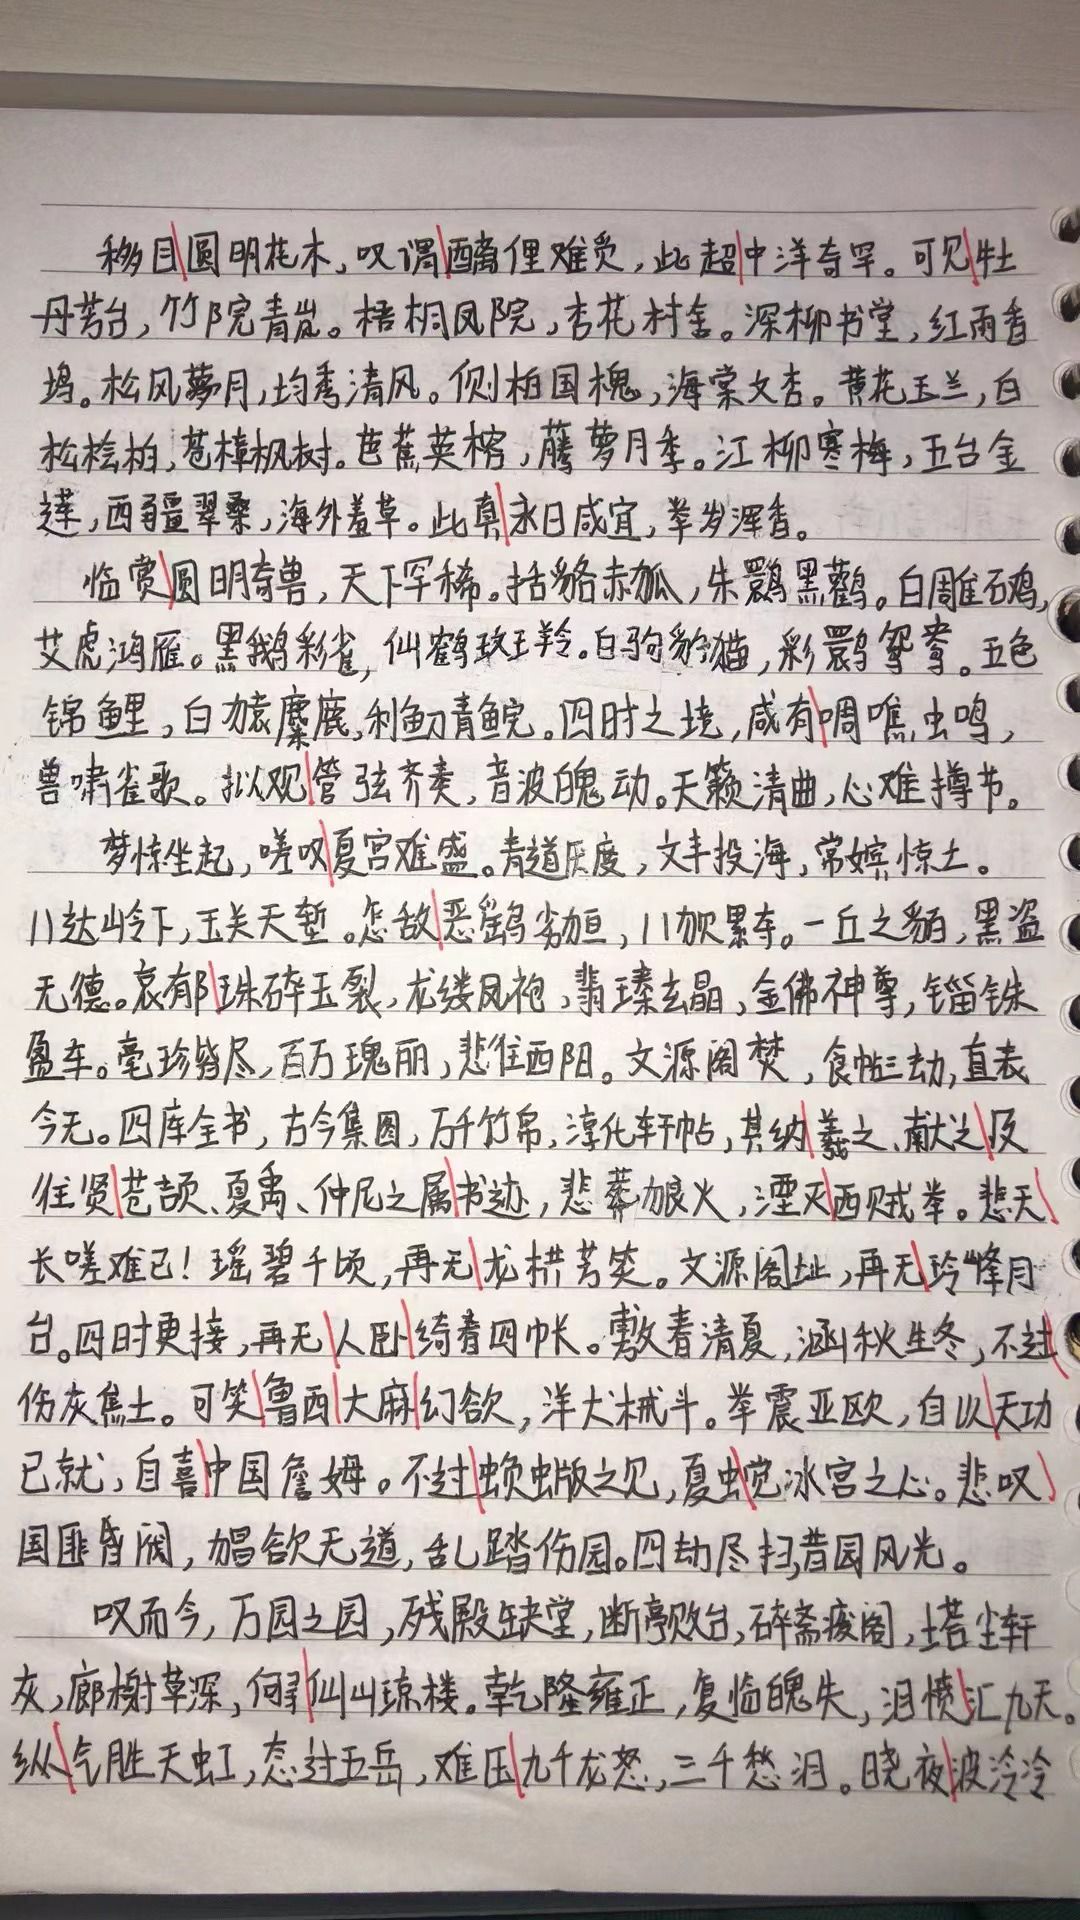 移目圆明花木，叹谓醨俚难受，此超中洋奇罕。可见牡
丹芳台，竹院青岚。梧桐凤院，杏花村舍。深柳书堂，红雨香
坞。松风萝月，均秀清风。侧柏国槐，海棠文杏。黄花玉兰，白
松桧柏，苍樟枫树。芭蕉英榕，藤萝月季。江柳寒梅，五台金
莲，西疆翠桑，海外羞草。此真永日咸宜，举岁浑香。
临赏圆明奇兽，天下罕稀。括貉赤狐，朱鹮黑鹳。白雕石鸡，
艾虎鸿雁。黑鹅彩雀，仙鹤玫玉羚。白驹豹猫，彩鹮鸳鸯。五色
锦鲤，白猿麋鹿，利鱽青鲩。四时之境，咸有啁噍虫鸣，
兽啸雀歌。拟观管弦齐奏，音波魄动。天籁清曲，心难撙节。
梦惊坐起，嗟叹夏宫难盛。青道厌度，文丰投海，常嫔惊亡。
八达岭下，玉关天堑。怎敌恶鹞劣，八加累车。一丘之貊，黑盗
无德。哀有那珠碎玉裂，龙缕凤袍，翡瑧玄晶，金佛神尊，锱铢
盈车。毫珍皆尽，百万瑰丽，悲往西阳。文源阁焚，食帖三劫，直表
今无。四库全书，古今集图，万千竹帛，淳化轩帖，其纳羲之、献之及
往贤苍颉、夏禹、仲尼之属书迹，悲葬狼火，湮灭西贼举。悲天
长嗟难已！瑶碧千顷，再无龙拱芳笑。文源阁址，再无玲峰月
台。四时更接，再无人卧绮春四帐。敷春清夏，涵秋生冬，不过
伤灰焦土。可笑鲁西大麻幻欲，洋犬械斗。举震亚欧，自以天功
已就，自喜中国詹姆。不过蝜蝂之见，夏虫觉冰宫之心。悲叹
国匪昏阀，加昌欲无道，乱踏伤园。四劫尽扫昔园风光。
叹而今，万园之园，残殿缺堂，断亭败台，碎斋疲阁，塔尘轩
灰，廊榭草深，何寻仙山琼楼。乾隆雍正，复临魄失，泪愤汇九天。
纵气胜天虹，态过五岳，难压九千龙怒，三千愁泪。晓夜波泠泠